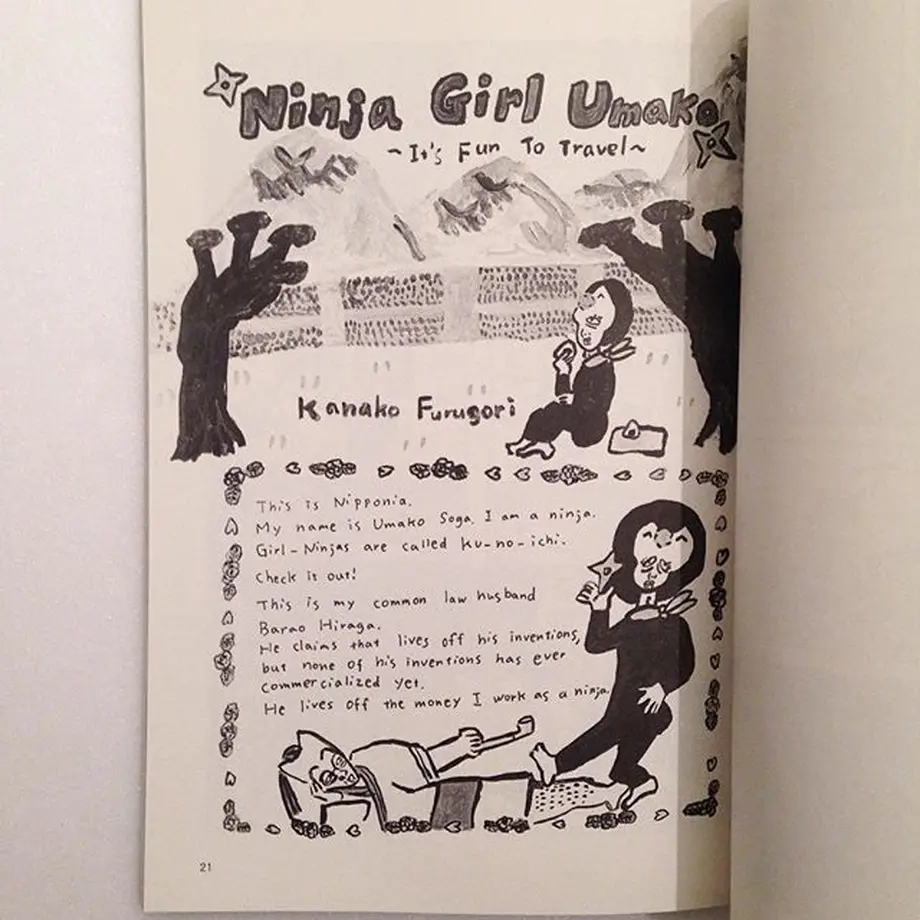 Ninja Girl Umako
~It's Fun To Travel~
Kanako Furugori
This is Nipponia.
My name is Umako Soga. I am a ninja.
Girl-Ninjas are called Ku-no-ichi.
Check it out!
This is my common law husband
Barao Hiraga.
He claims that lives off his inventions,
but none of his inventions has ever
commercialized yet.
He lives off the money I work as a ninja.
21